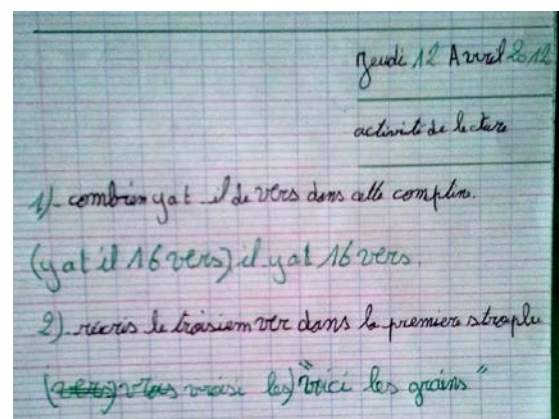 Jeudi 12 Avril 2012
activité de lecture
1)- combien y at il de vers dans cette comptine.
(y at il 16 vers) il y at 16 vers.
2)- réecris le troisiem ver dans la premiere strophe
(vers) vras vraisi les) "voici les grains"